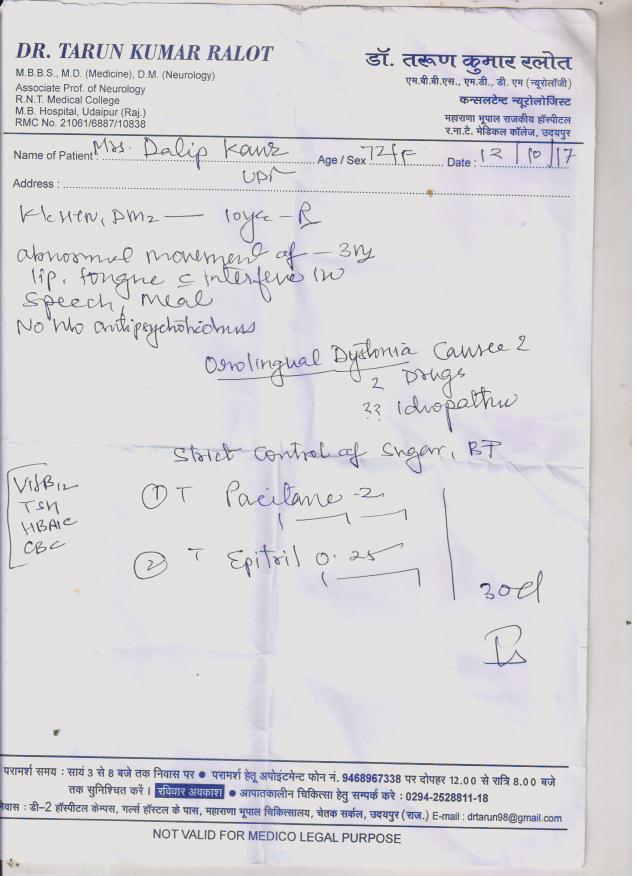 DR. TARUN KUMAR RALOT
M.B.B.S., M.D. (Medicine), D.M. (Neurology)
Associate Prof. of Neurology
R.N.T. Medical College
M.B. Hospital, Udaipur (Raj.)
RMC No. 21061/6887/10838
डॉ. तरूण कुमार रलोत
एम.बी.बी.एस., एम.डी., डी. एम (न्यूरोलॉजी)
कन्सलटेन्ट न्यूरोलोजिस्ट
महाराणा भूपाल राजकीय हॉस्पीटल
र.ना.टै. मेडिकल कॉलेज, उदयपुर
Name of Patient Mrs. Dalip Kaur Age / Sex 72/F Date : 12/10/17
Address : UDR
HTN, DM2 — 10
abnormal movement of — 3
lip, tongue c interfere in
Speech, meal
No h/o
Orolingual Dystonia Cause ?
? Drugs
?? Idiopathic
Strict Control of Sugar, BP
Vit B12
TSH
HBA1C
CBC
① T Pacitane - 2
② T Epitril 0.25
30d
परामर्श समय : सायं 3 से 8 बजे तक निवास पर ● परामर्श हेतू अपोइंटमेन्ट फोन नं. 9468967338 पर दोपहर 12.00 से रात्रि 8.00 बजे
तक सुनिश्चित करें । रविवार अवकाश ● आपातकालीन चिकित्सा हेतु सम्पर्क करे : 0294-2528811-18
निवास : डी-2 हॉस्पीटल केम्पस, गर्ल्स हॉस्टल के पास, महाराणा भूपाल चिकित्सालय, चेतक सर्कल, उदयपुर (राज.) E-mail : drtarun98@gmail.com
NOT VALID FOR MEDICO LEGAL PURPOSE